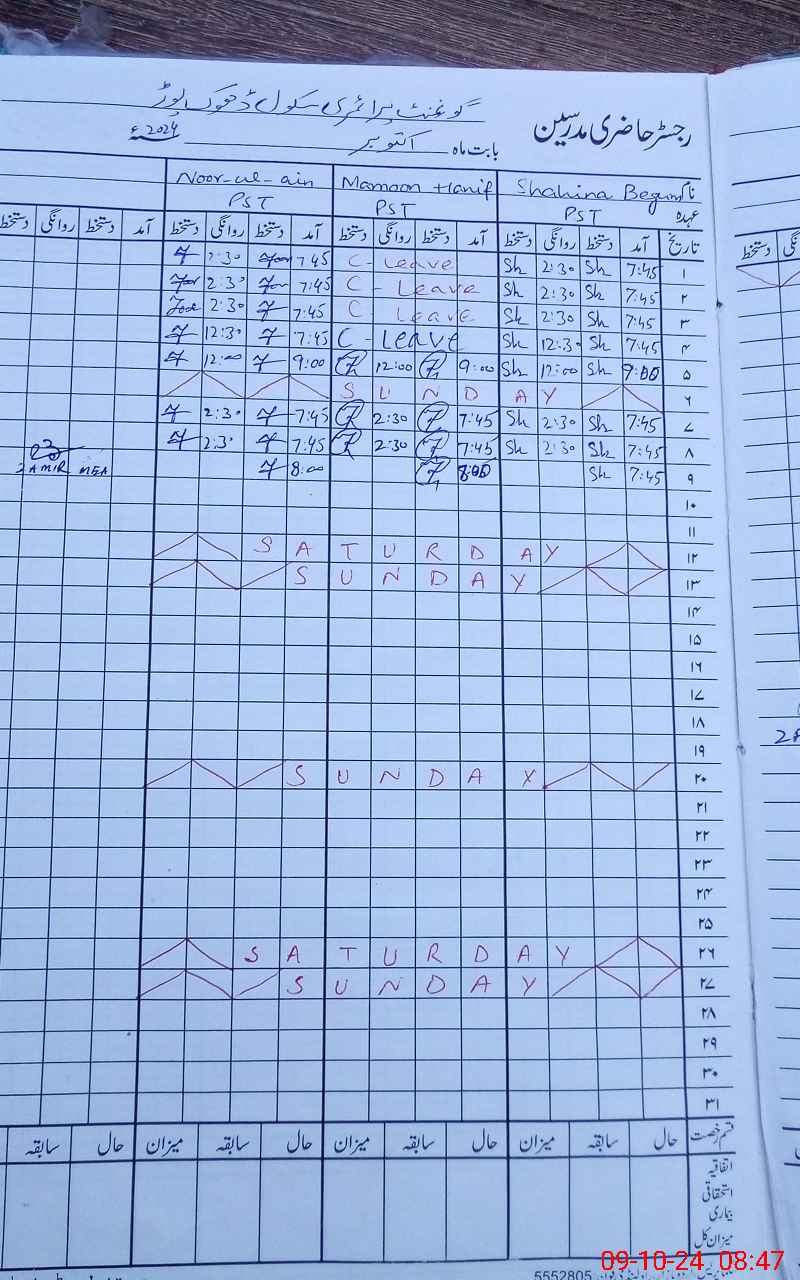 گورنمنٹ پرائمری سکول ڈھوک
رجسٹر حاضری مدرسین
بابت ماہ اکتوبر 2024ء
نام Shahina Begum Mamoon Hanif Noor-ul-ain
عہدہ PST PST PST
تاریخ آمد دستخط روانگی دستخط آمد دستخط روانگی دستخط آمد دستخط روانگی دستخط آمد دستخط روانگی دستخط
۱ 7:45 Sh 2:30 Sh C-Leave 7:45 2:30
۲ 7:45 Sh 2:30 Sh C-Leave 7:45 2:30
۳ 7:45 Sh 2:30 Sh C-Leave 7:45 2:30
۴ 7:45 Sh 12:30 Sh C-Leave 7:45 12:30
۵ 9:00 Sh 12:00 Sh 9:00 12:00 9:00 12:00
۶ SUNDAY
۷ 7:45 Sh 2:30 Sh 7:45 2:30 7:45 2:30
۸ 7:45 Sh 2:30 Sh 7:45 2:30 7:45 2:30
۹ 7:45 Sh 8:00 8:00 MEA
۱۰
۱۱
۱۲ SATURDAY
۱۳ SUNDAY
۱۴
۱۵
۱۶
۱۷
۱۸
۱۹
۲۰ SUNDAY
۲۱
۲۲
۲۳
۲۴
۲۵
۲۶ SATURDAY
۲۷ SUNDAY
۲۸
۲۹
۳۰
۳۱
قسم رخصت حال سابقہ میزان حال سابقہ میزان حال سابقہ میزان حال سابقہ
اتفاقیہ
استحقاقی
بیماری
میزان کل
5552805
09-10-24 08:47